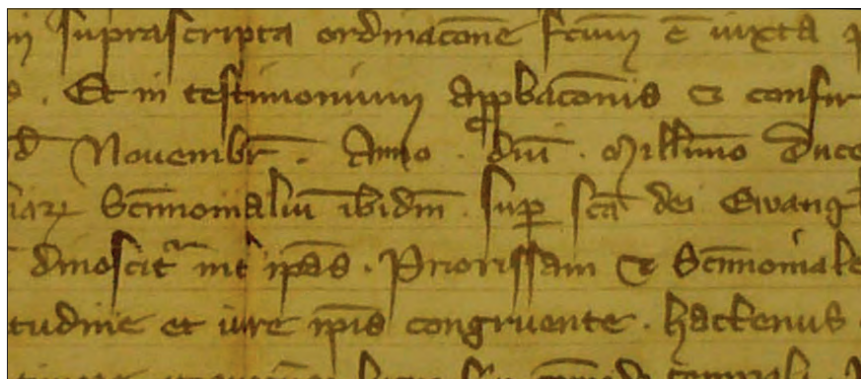 suprascripta ordinac̄one fc̄um ē iuxta
Et in testimonium app̱bac̄onis & confir
Nouembr̄ . Anno . dn̄i . Mill̄imo Duce
Sc̄imonialiū ibidm̄ . sup̱ sc̄a dei Ewang
dinoscit᷑ int̄ ip̄as . Priorissam & Sc̄imoniale
tudine et iure ip̄is congruente . hactenus